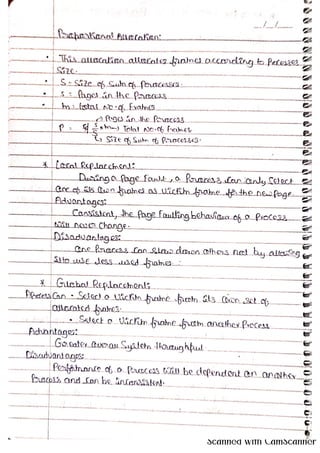 Proportional Allocation:
• This allocation allocates frames according to Process
Size.
• S - Size of Sum of Processes.
• s - Pages in the Process
• m - total No. of Frames
Pages in the Process
P = s/S × m Total No. of Frames
Size of Sum of Processes.
* Local Replacement:
During a Page fault, a Process can only select
one of its own frames as Victim frame for the new Page
Advantages:
Consistent, the Page Faulting behaviour of a Process
Will never Change.
Disadvantages:
One Process can slow down others not by allowing
it to use less used frames
* Global Replacement:
Process can • Select a Victim frame from its own Set of
allocated frames.
• Select a Victim frame from another Process
Advantages:
Greater overall System throughput
Disadvantages:
Performance of a Process will be dependent on another
Process and can be inconsistent.
Scanned with CamScanner